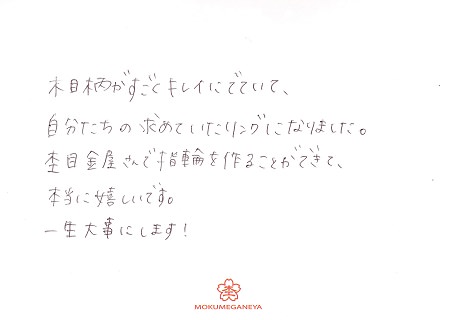 木目柄がすごくキレイにでていて、
自分たちの求めていたリングになりました。
杢目金屋さんで指輪を作ることができて、
本当に嬉しいです。
一生大事にします!
MOKUMEGANEYA